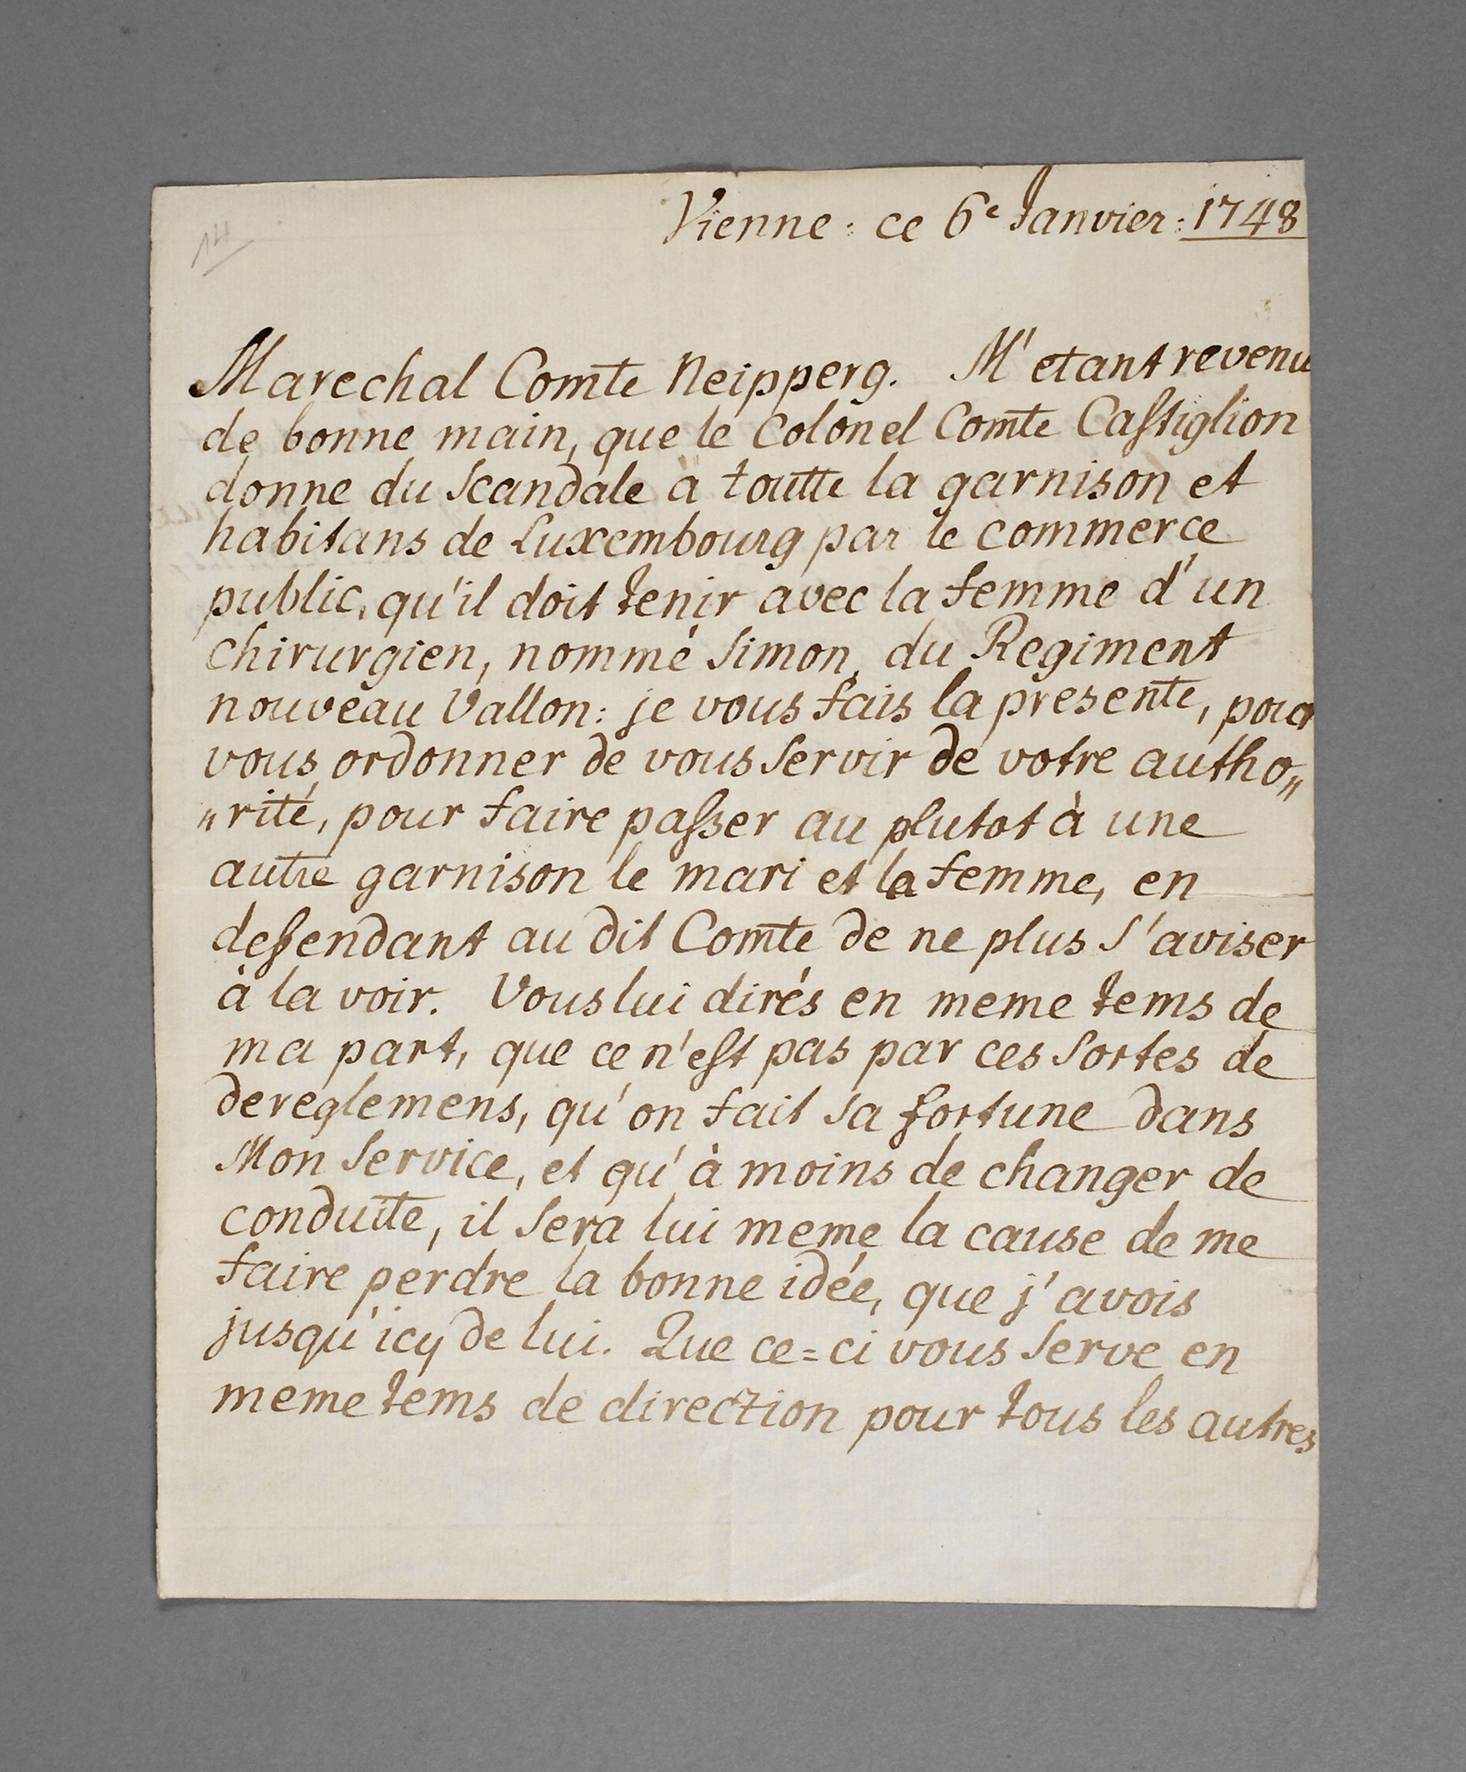 14
Vienne : ce 6e Janvier : 1748
Marechal Comte Neipperg. M'etant revenu
de bonne main, que le Colonel Comte Castiglion
donne du Scandale à toutte la garnison et
habitans de Luxembourg par le commerce
public, qu'il doit tenir avec la femme d'un
Chirurgien, nommé Simon, du Regiment
nouveau Vallon : je vous fais la presente, pour
vous ordonner de vous Servir de votre autho„
„rité, pour faire passer au plutot à une
autre garnison le mari et la femme, en
defendant au dit Comte de ne plus S'aviser
à la voir. Vous lui dirés en meme tems de
ma part, que ce n'est pas par ces Sortes de
dereglemens, qu'on fait Sa fortune dans
Mon Service, et qu'à moins de changer de
conduite, il Sera lui meme la cause de me
faire perdre la bonne idée, que j'avois
jusqu'icy de lui. Que ce=ci vous Serve en
meme tems de direction pour tous les autres